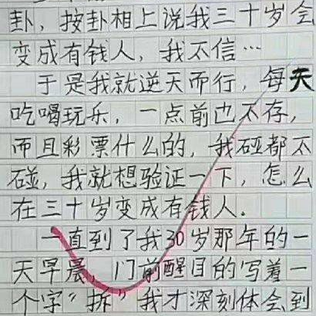 卦，按卦相上说我三十岁会
变成有钱人，我不信…
于是我就逆天而行，每天
吃喝玩乐，一点前也不存，
而且彩票什么的，我碰都不
碰，我就想验证一下，怎么
在三十岁变成有钱人.
一直到了我30岁那年的一
天早晨，门前醒目的写着一
个字"拆"我才深刻体会到